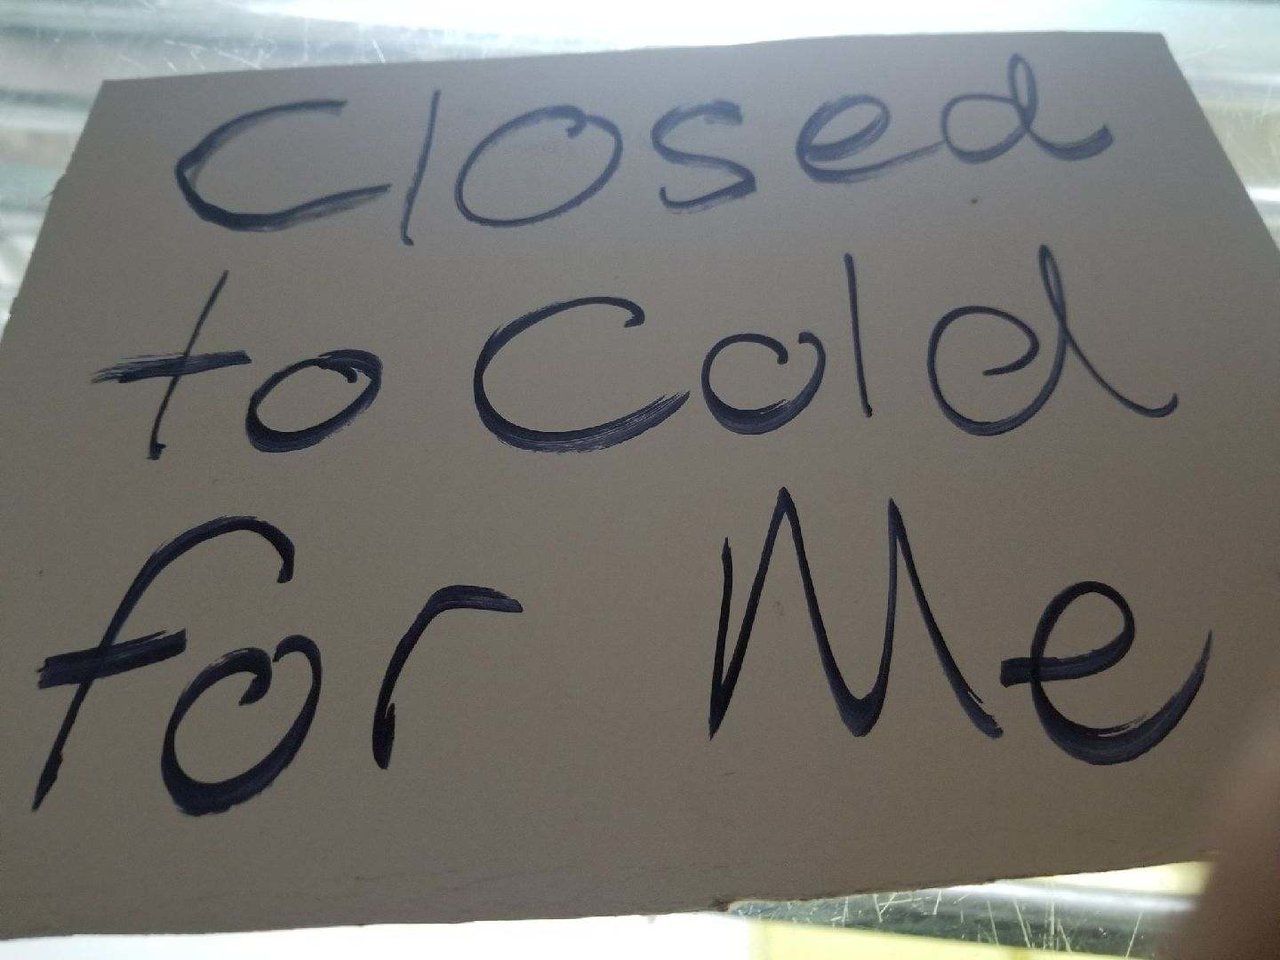 Closed
to Cold
for Me